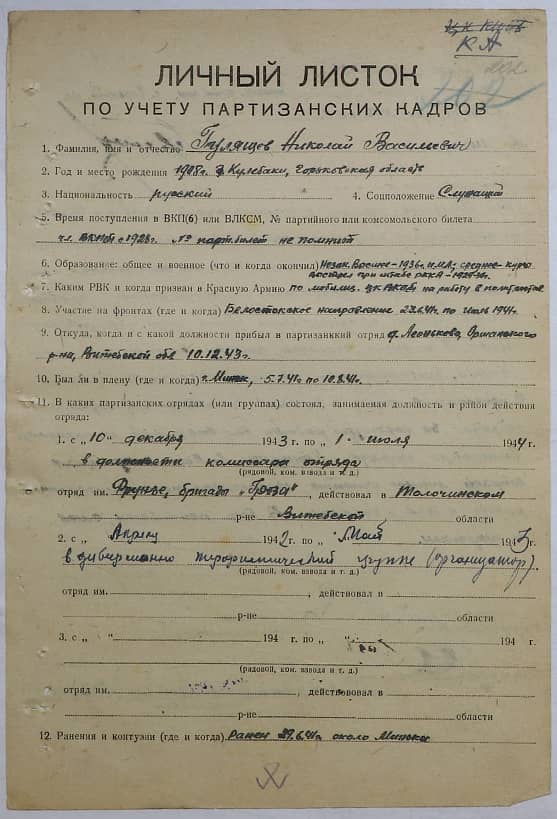 К А
202
ЛИЧНЫЙ ЛИСТОК
ПО УЧЕТУ ПАРТИЗАНСКИХ КАДРОВ
1. Фамилия, имя и отчество Николай Васильевич
2. Год и место рождения 1908г. г. Кулебаки, Горьковская область
3. Национальность русский 4. Соцположение Служащий
5. Время поступления в ВКП(б) или ВЛКСМ, № партийного или комсомольского билета
чл. ВКП(б) с 1928г. № парт.билет не помнит
6. Образование: общее и военное (что и когда окончил) Незак. Высшее - 1936г. среднее - курсы
при штабе РККА
7. Каким РВК и когда призван в Красную Армию по мобилиз. на работу в
8. Участие на фронтах (где и когда) Белостокское направление 22.6.41г. по Июль 1941г.
9. Откуда, когда и с какой должности прибыл в партизанский отряд Оршанского
р-на, Витебской обл 10.12.43г.
10. Был ли в плену (где и когда) г. Минск, 5.7.41г по 10.8.41г.
11. В каких партизанских отрядах (или группах) состоял, занимаемая должность и район действия
отряда:
1. с „ 10 " декабря 1943 г. по „ 1 " июля 1944 г.
в должности комиссара отряда
(рядовой, ком. взвода и т. д.)
отряд им. Фрунзе, бригады „Гроза", действовал в Толочинском
р-не Витебской области
2. с „ Апрель 1942 г. по „ Май 1943 г.
в диверсионно группе (организатор).
(рядовой, ком. взвода и т. д.)
отряд им. , действовал в
р-не области
3. с „ " 194 г. по „ " 194 г.
(рядовой, ком. взвода и т. д.)
отряд им. , действовал в
р-не области
12. Ранения и контузии (где и когда) Ранен 29.6.41г. около Минска